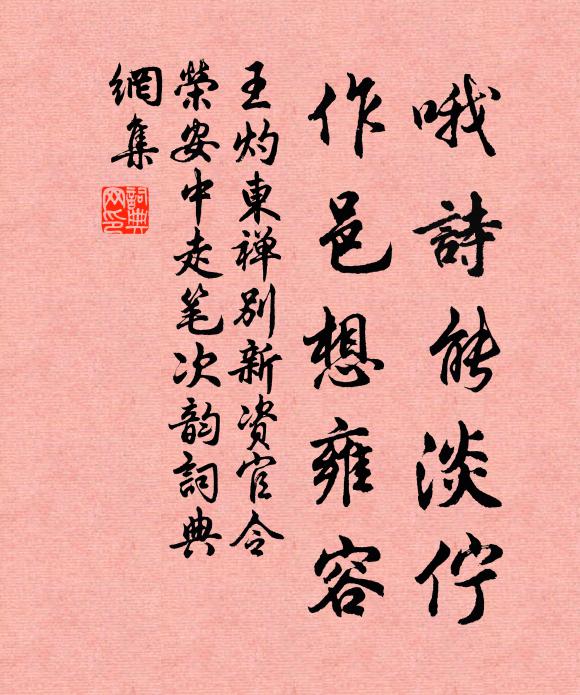 哦詩能淡佇
作邑想雍容
王灼東禅別新資官令
榮安中走笔次韵詞典
網集
詞典
网印